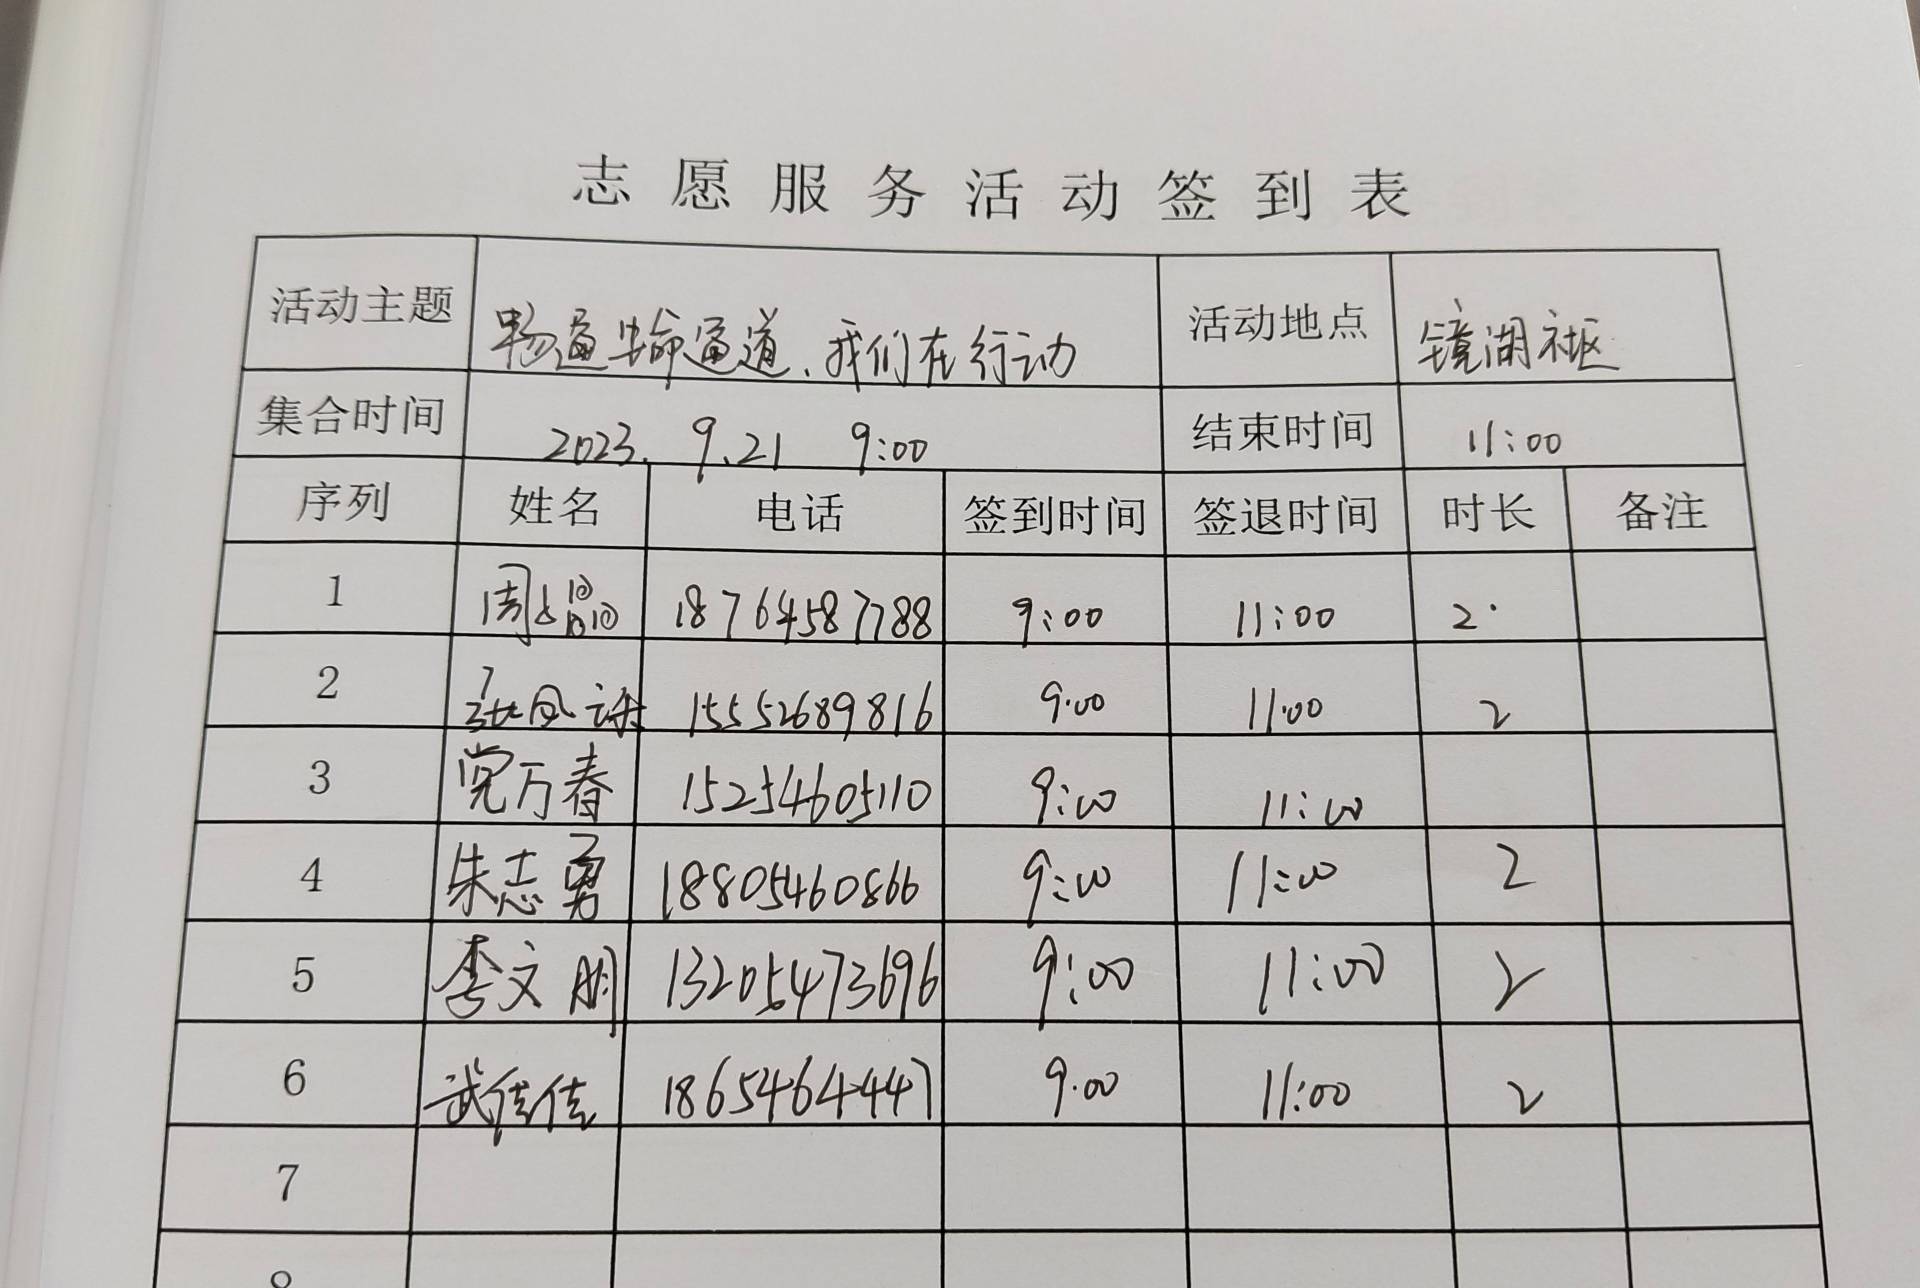 志愿服务活动签到表
活动主题 畅通生命通道、我们在行动 活动地点 镜湖社区
集合时间 2023.9.21 9:00 结束时间 11:00
序列 姓名 电话 签到时间 签退时间 时长 备注
1 周 晶 18764587788 9:00 11:00 2
2 张风 15552689816 9:00 11:00 2
3 党万春 15254605110 9:00 11:00
4 朱志勇 18805460866 9:00 11:00 2
5 李文朋 13205473696 9:00 11:00 2
6 武佳佳 18654644447 9.00 11:00 2
7
8